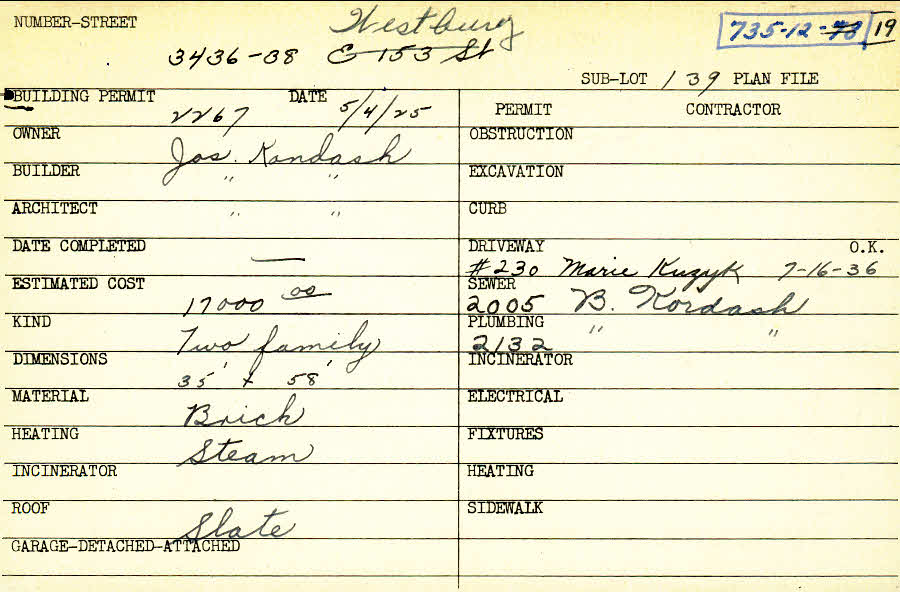 NUMBER-STREET Westburg 735-12-78 19
3436-38 E 153 St
SUB-LOT 139 PLAN FILE
BUILDING PERMIT 2267 DATE 5/4/25 PERMIT CONTRACTOR
OWNER Jos. Kondash OBSTRUCTION
BUILDER " " EXCAVATION
ARCHITECT " " CURB
DATE COMPLETED — DRIVEWAY O.K.
#230 Marie Kuzyk 7-16-36
ESTIMATED COST 17000 00 SEWER
2005 B. Kordash
KIND Two family PLUMBING
2132 " "
DIMENSIONS 35' x 58' INCINERATOR
MATERIAL Brick ELECTRICAL
HEATING Steam FIXTURES
INCINERATOR HEATING
ROOF Slate SIDEWALK
GARAGE-DETACHED-ATTACHED